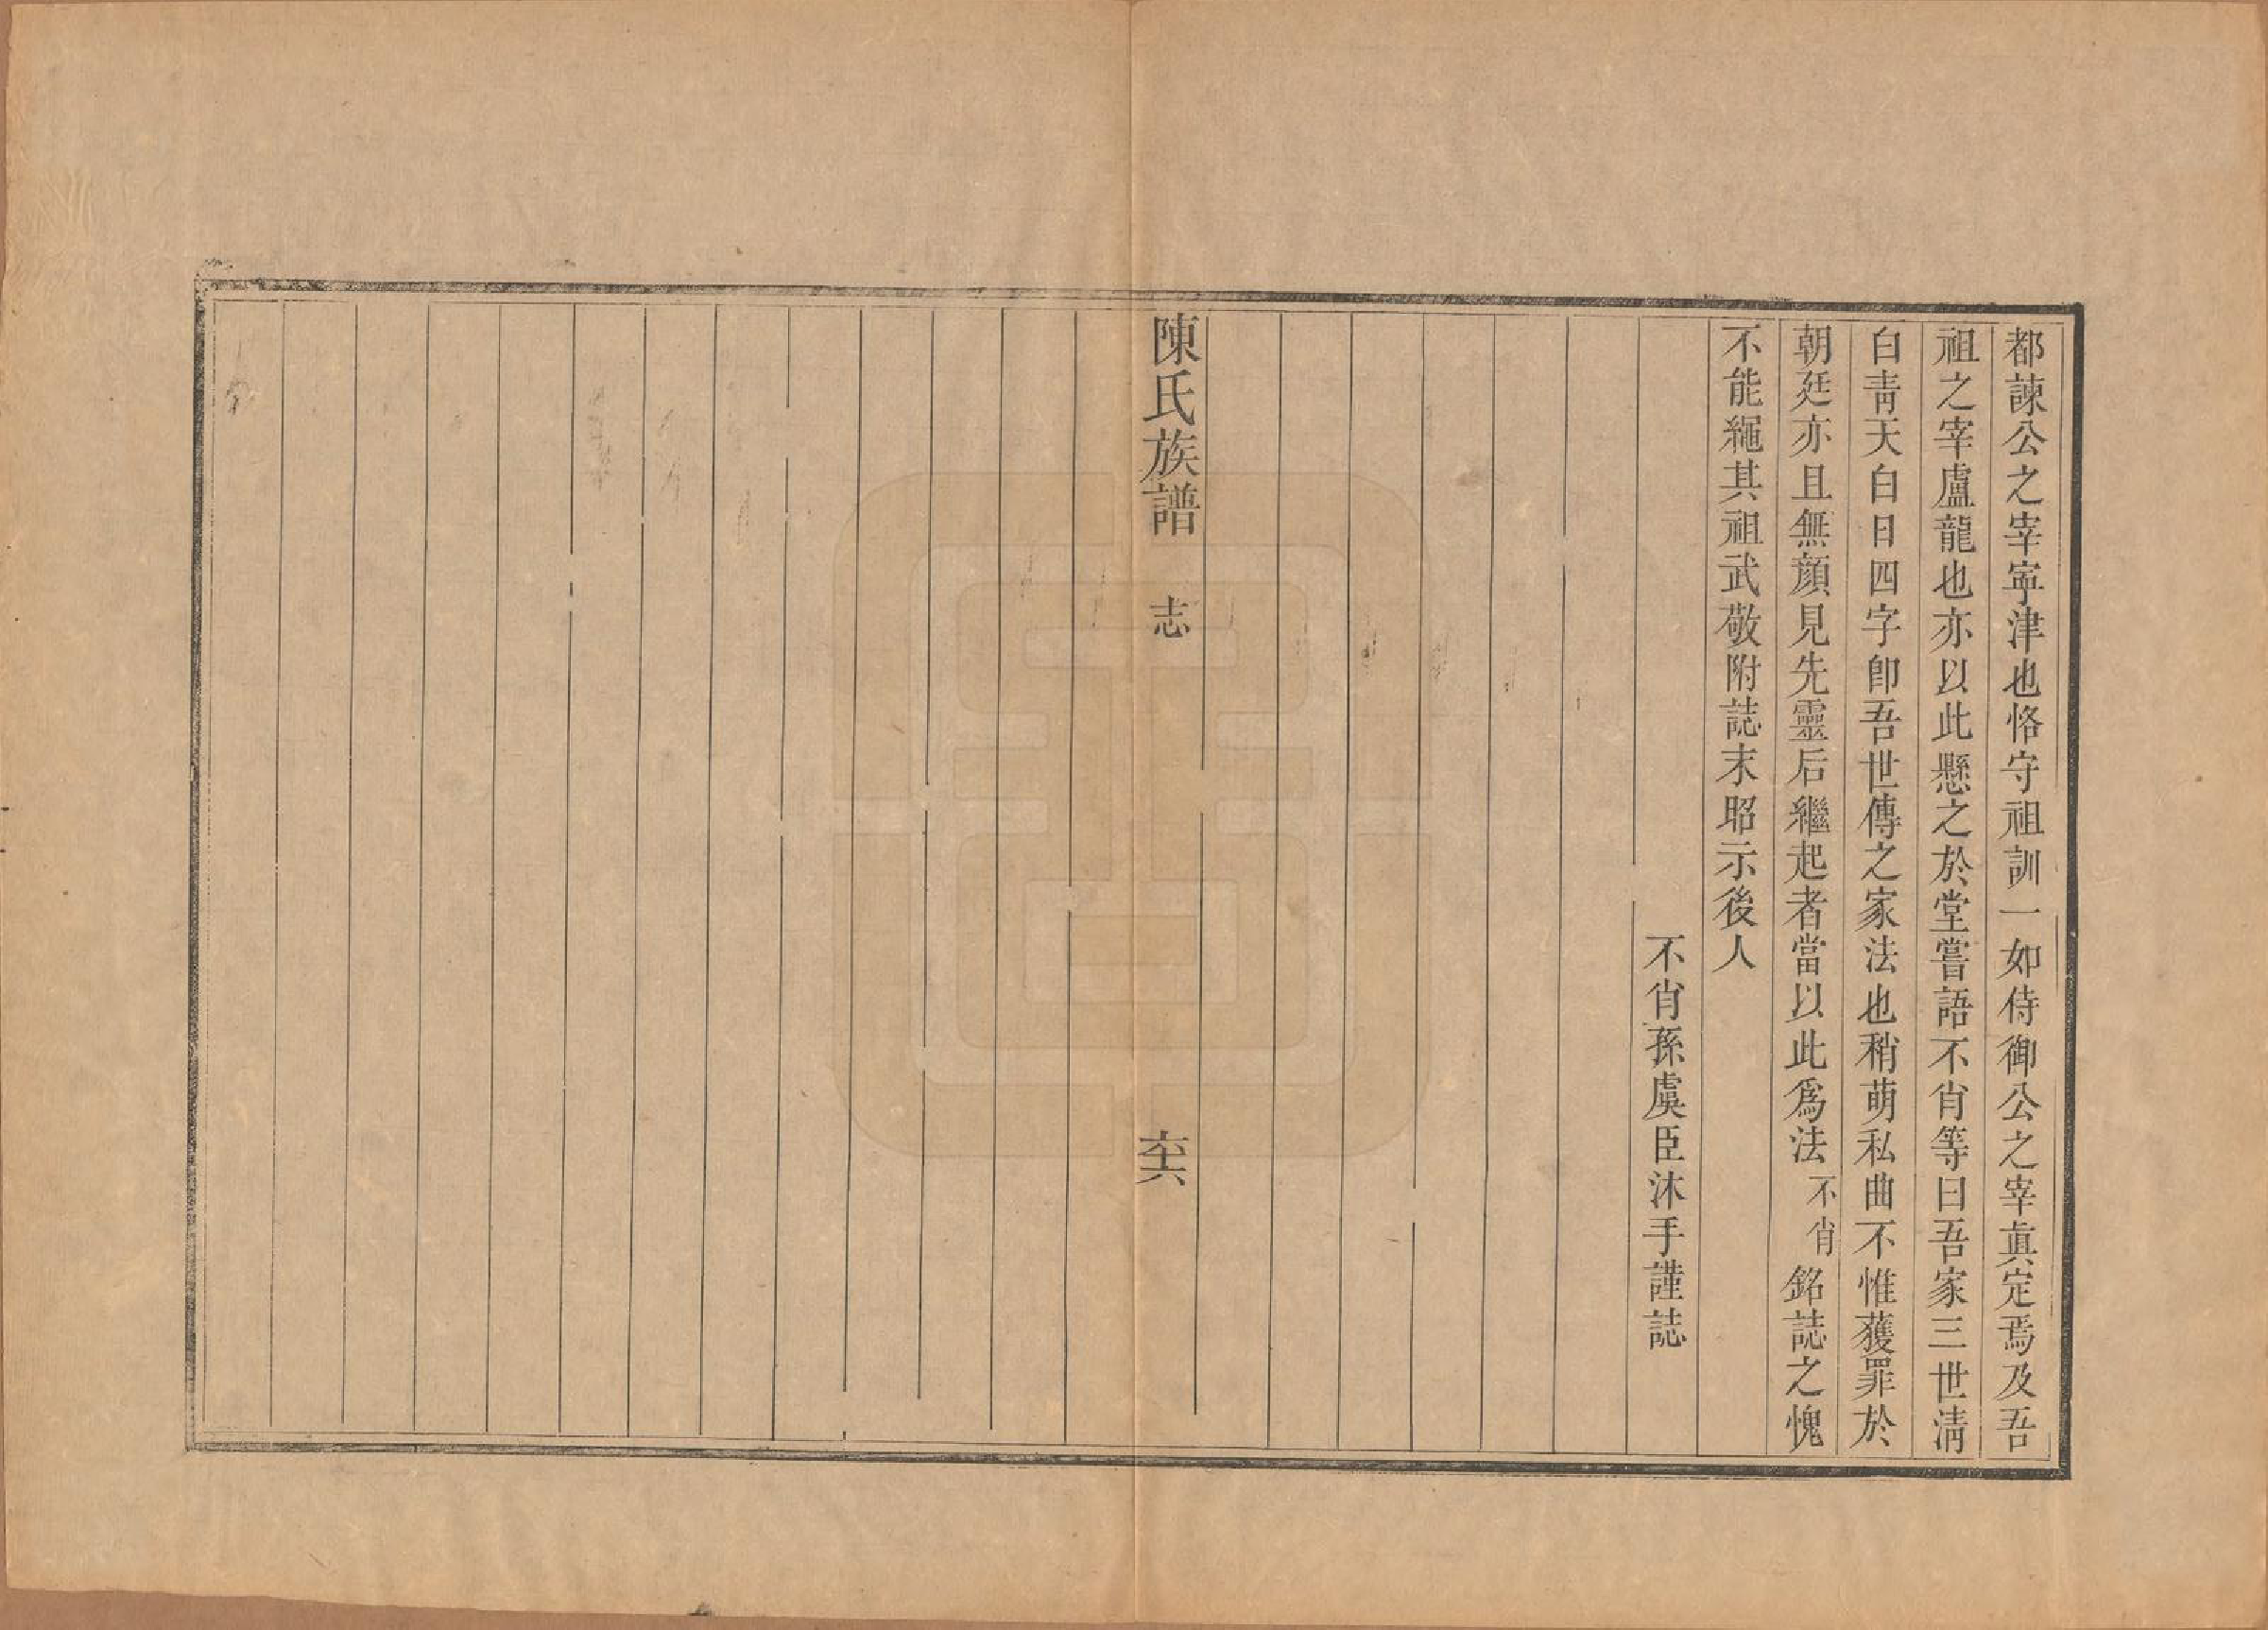 都諫公之宰寕津也恪守祖訓一如侍御公之宰眞定焉及吾
祖之宰盧龍也亦以此懸之於堂嘗語不肖等曰吾家三世淸
白靑天白日四字卽吾世傳之家法也稍萌私曲不惟獲罪於
朝廷亦且無顔見先靈后繼起者當以此爲法不肖銘誌之愧
不能繩其祖武敬附誌末昭示後人
不肖孫虞臣沐手謹誌
陳氏族譜 志 六六